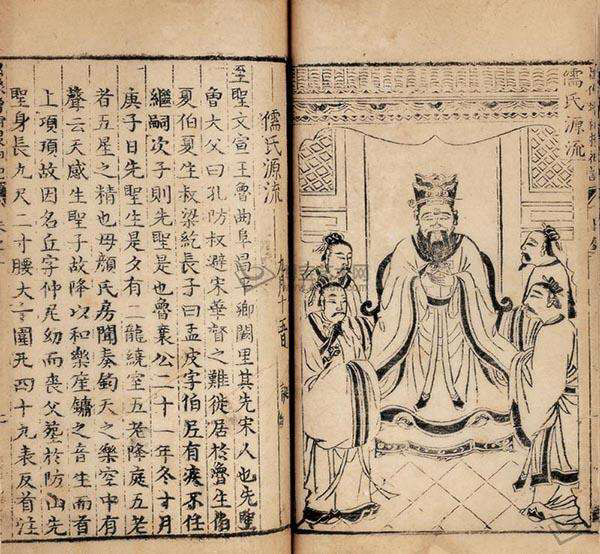 儒氏源流
儒氏源流
至聖文宣王魯曲阜昌鄉闕里其先宋人也先聖
魯大父曰孔防叔避宋華督之難徙居於魯生伯
夏伯夏生叔梁紇長子曰孟皮字伯有疾不任
繼嗣次子則先聖是也魯襄公二十一年冬十月
庚子日先聖生是夕有二龍繞室五老降庭五老
者五星之精也母顏氏房聞奏鈞天之樂空中有
聲云天感生聖子故降以和樂笙鏞之音生而首
上項頂故因名丘字仲尼幼而喪父葬於防山先
聖身長九尺二寸腰大十圍凡四十九表反首洼